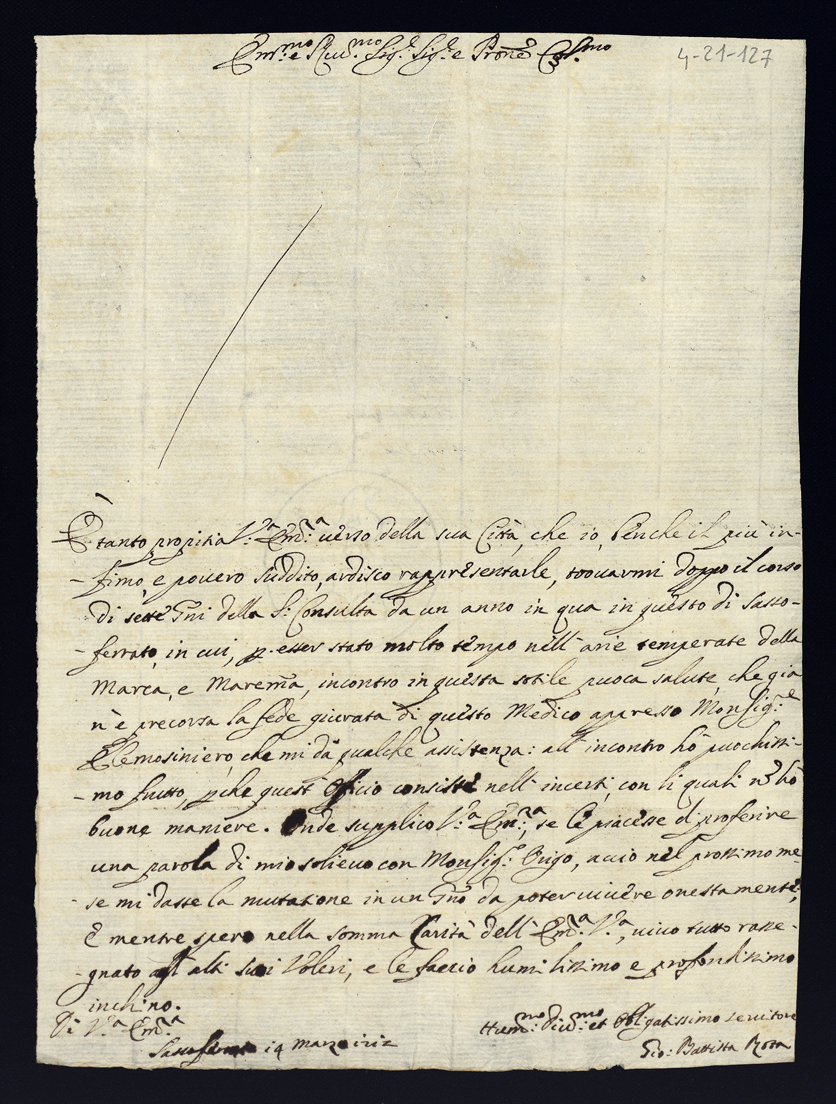 Em.mo e Rev.mo Sig.r Sig.r e Prone Col.mo
4-21-127
È tanto propitia V.ra Em.za verso della sua Città, che io, benche il più in-
-fimo, e povero suddito, ardisco rappresentarle, trovarmi doppo il corso
di sette Gni della S. Consulta da un anno in qua in questo di Sasso-
-ferrato, in cui, p. esser stato molto tempo nell'arie temperate della
Marca, e Marema, incontro in questa sotile puoca salute, che gia
n'è precorsa la fede giurata di questo Medico appresso Monsig.re
Elemosiniero, che mi dà qualche assistenza: all'incontro hò puochissi-
-mo frutto, pche quest'Officio consiste nell'incerti, con li quali nō hò
buone maniere. Onde supplico V.ra Em.za, se le piacesse di proferire
una parola di mio solievo con Monsig.r Origo, acciò nel prossimo me-
-se mi dasse la mutatione in un Gno da poter vivere onestamente,
E mentre spero nella somma Carità dell'Em.za V.ra, vivo tutto rasse-
-gnato agl'alti suoi Voleri, e le faccio humilissimo e profondissimo
inchino.
Di V.ra Em.za
Sassoferrato 14 Marzo 1712
Hum.mo Div.mo et Obligatissimo servitore
Gio: Battista Rosa